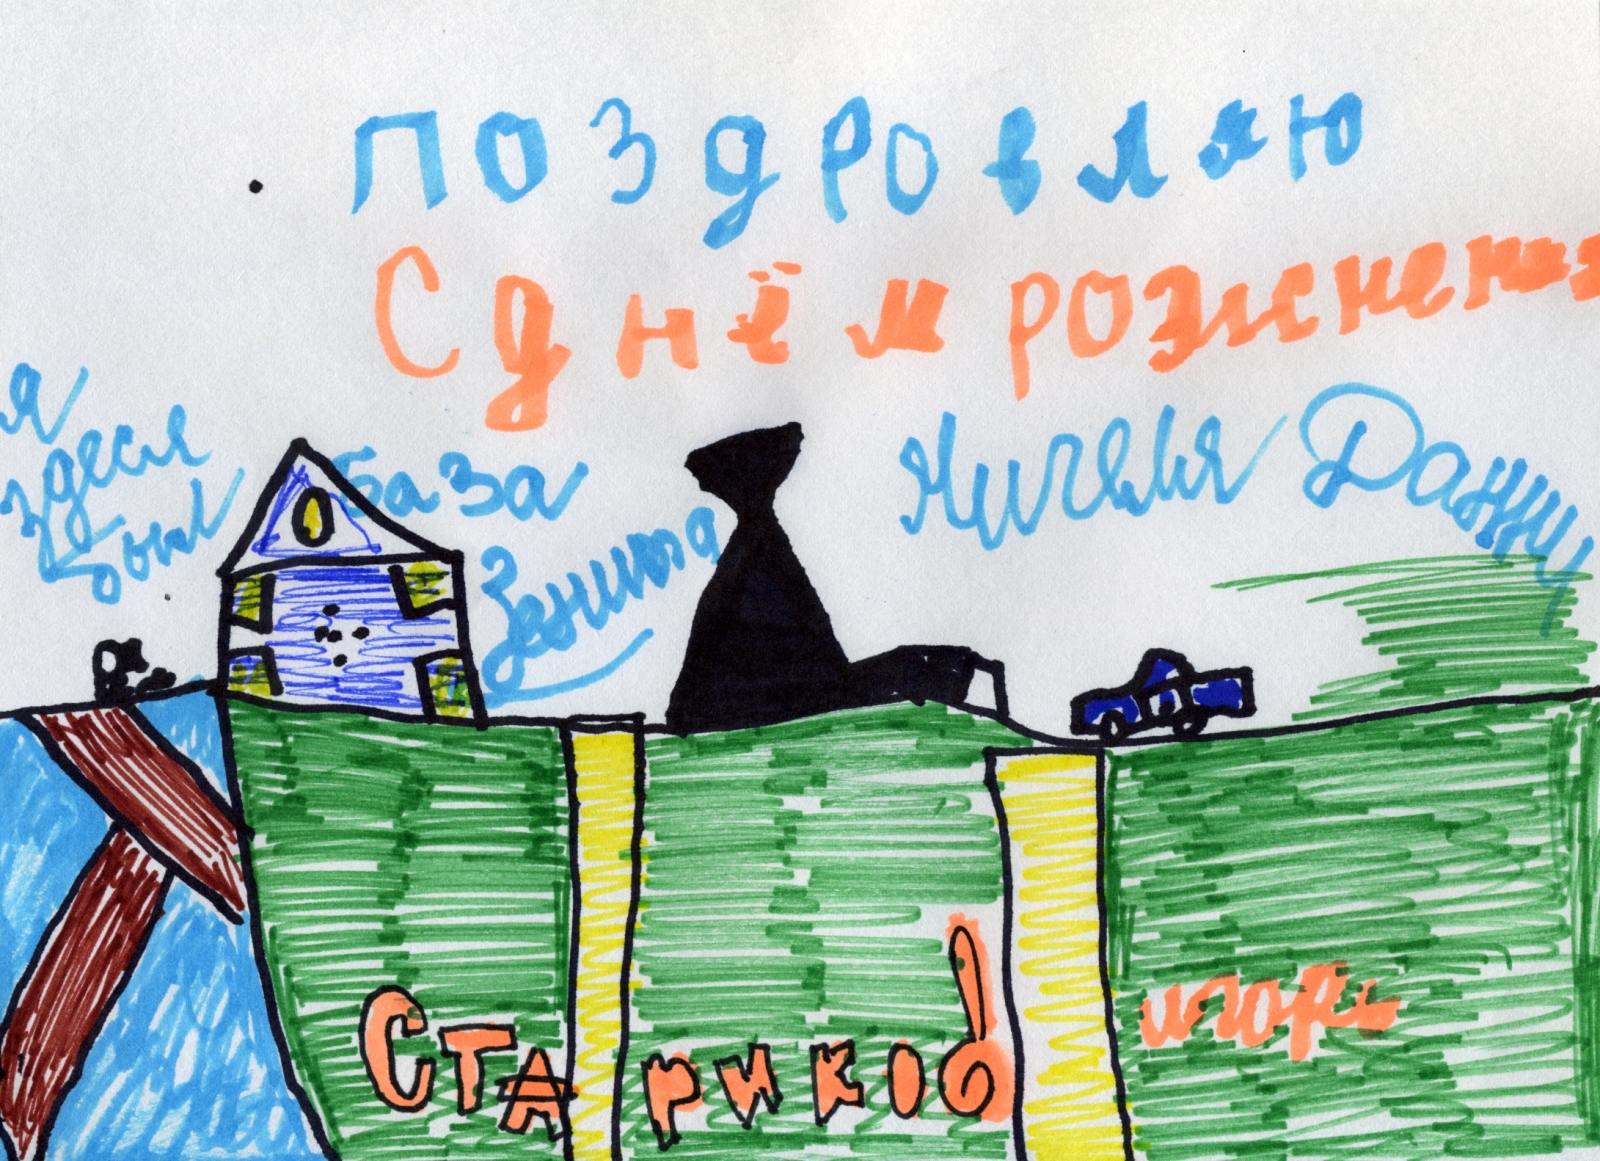 поздровляю
С днём рожнения
я
здеся
был
база
Зенита
Стариков
игорь